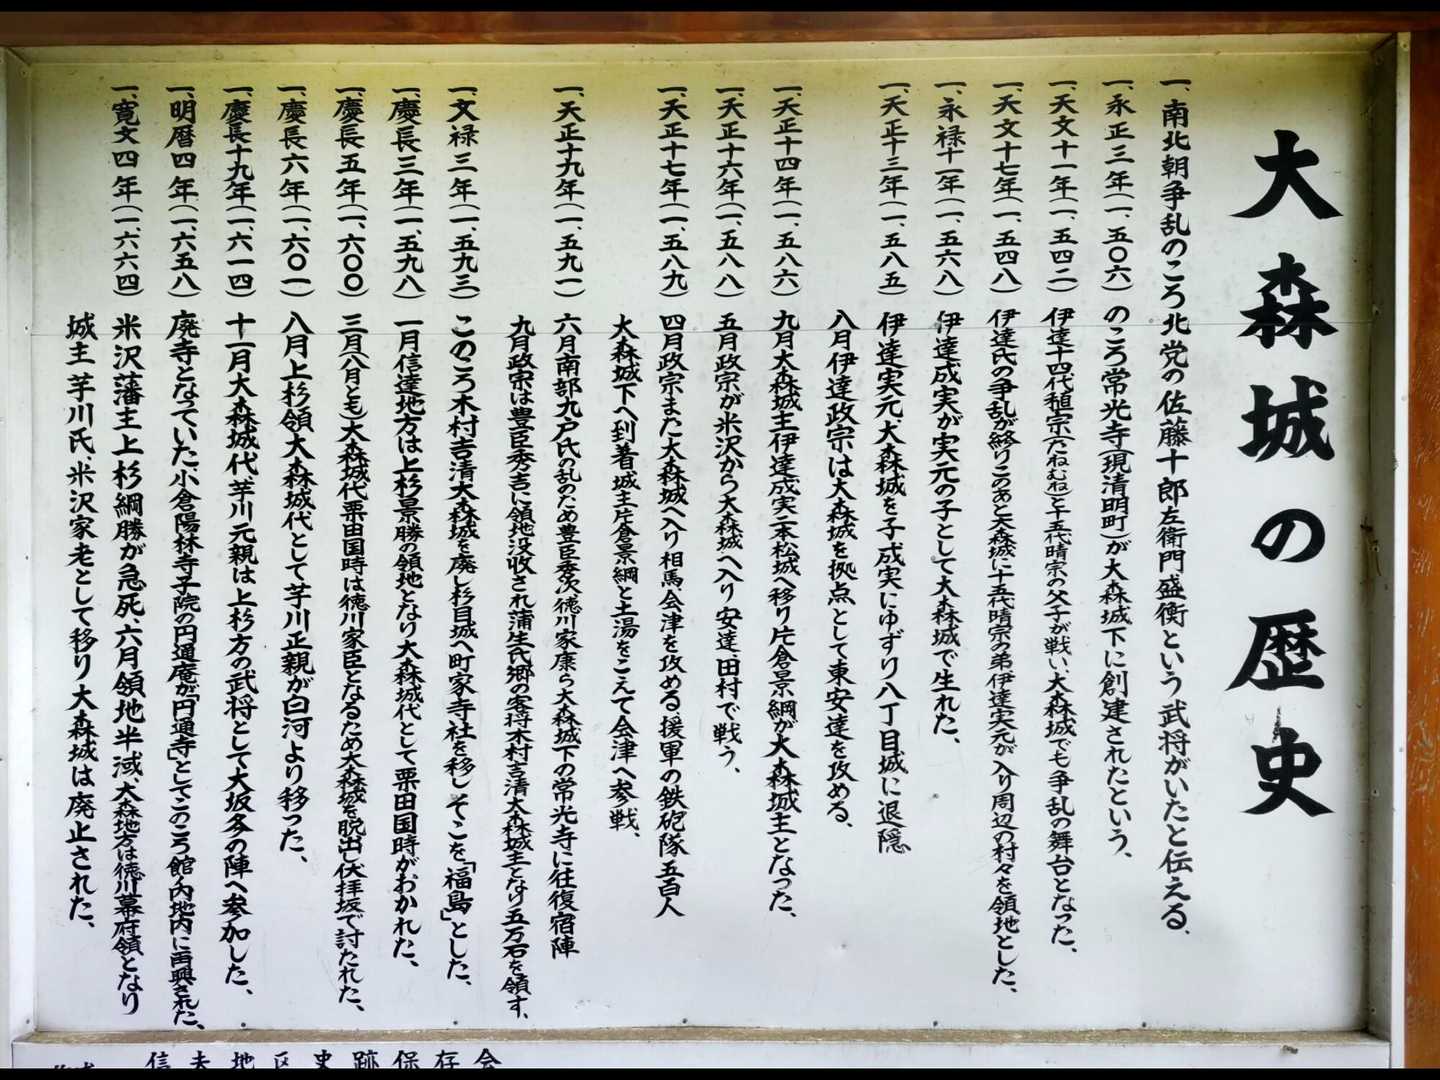 大森城の歴史
一、南北朝争乱のころ北党の佐藤十郎左衛門盛衡という武将がいたと伝える、
一、永正三年(一、五〇六)のころ常光寺(現清明町)が大森城下に創建されたという、
一、天文十一年(一、五四二)伊達十四代稙宗(たねむね)と十五代晴宗の父子が戦い、大森城でも争乱の舞台となった、
一、天文十七年(一、五四八)伊達氏の争乱が終りこのあと大森城に十五代晴宗の弟伊達実元が入り周辺の村々を領地とした、
一、永禄十一年(一、五六八)伊達成実が実元の子として大森城で生れた、
一、天正十三年(一、五八五)伊達実元、大森城を子成実にゆずり八丁目城に退隠
八月伊達政宗は大森城を拠点として東安達を攻める、
一、天正十四年(一、五八六)九月大森城主伊達成実二本松城へ移り片倉景綱が大森城主となった、
一、天正十六年(一、五八八)五月政宗が米沢から大森城へ入り安達、田村で戦う、
一、天正十七年(一、五八九)四月政宗また大森城へ入り相馬会津を攻める援軍の鉄砲隊五百人
大森城下へ到着城主片倉景綱と土湯をこえて会津へ参戦、
一、天正十九年(一、五九一)六月南部九戸氏の乱のため豊臣秀次徳川家康ら大森城下の常光寺に往復宿陣
九月政宗は豊臣秀吉に領地没収され蒲生氏郷の客将木村吉清大森城主となり五万石を領す、
一、文禄三年(一、五九三)このころ木村吉清大森城を廃し杉目城へ町家寺社を移しそこを「福島」とした、
一、慶長三年(一、五九八)一月信達地方は上杉景勝の領地となり大森城代として栗田国時がおかれた、
一、慶長五年(一、六〇〇)三月(八月とも)大森城代栗田国時は徳川家臣となるため大森城を脱出し伏拝坂で討たれた、
一、慶長六年(一、六〇一)八月上杉領大森城代として芋川正親が白河より移った、
一、慶長十九年(一、六一四)十一月大森城代芋川元親は上杉方の武将として大坂冬の陣へ参加した、
一、明暦四年(一、六五八)廃寺となっていた小倉陽林寺子院の円通庵が「円通寺」としてこのころ館ノ内地内に再興された、
一、寛文四年(一、六六四)米沢藩主上杉綱勝が急死、六月領地半減、大森地方は徳川幕府領となり
城主芋川氏、米沢家老として移り大森城は廃止された、
信夫地区史跡保存会